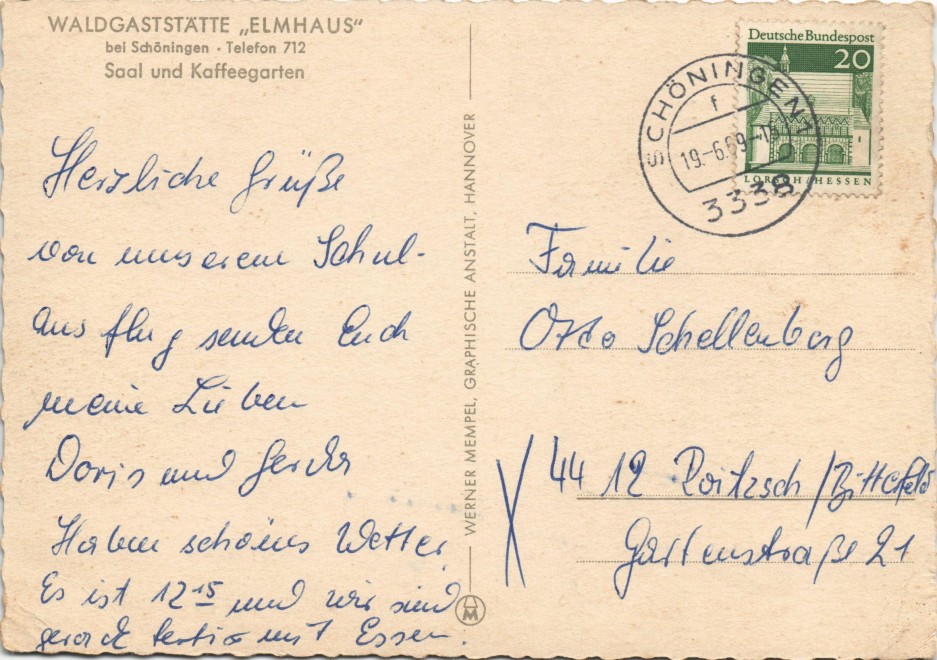 WALDGASTSTÄTTE „ELMHAUS“
bei Schöningen · Telefon 712
Saal und Kaffeegarten
Herzliche Grüße
von unserem Schul-
ausflug senden Euch
meine Lieben
Doris und Gerda
Haben schönes Wetter
Es ist 12 15 und wir sind
gerade fertig mit Essen.
WERNER MEMPEL, GRAPHISCHE ANSTALT, HANNOVER
M
Deutsche Bundespost
20
LORSCH/HESSEN
SCHÖNINGEN 1
f
19.-6.69.-1
3338
Familie
Otto Schellenberg
X 44 12 Roitzsch/Bitterfeld
Gartenstraße 21